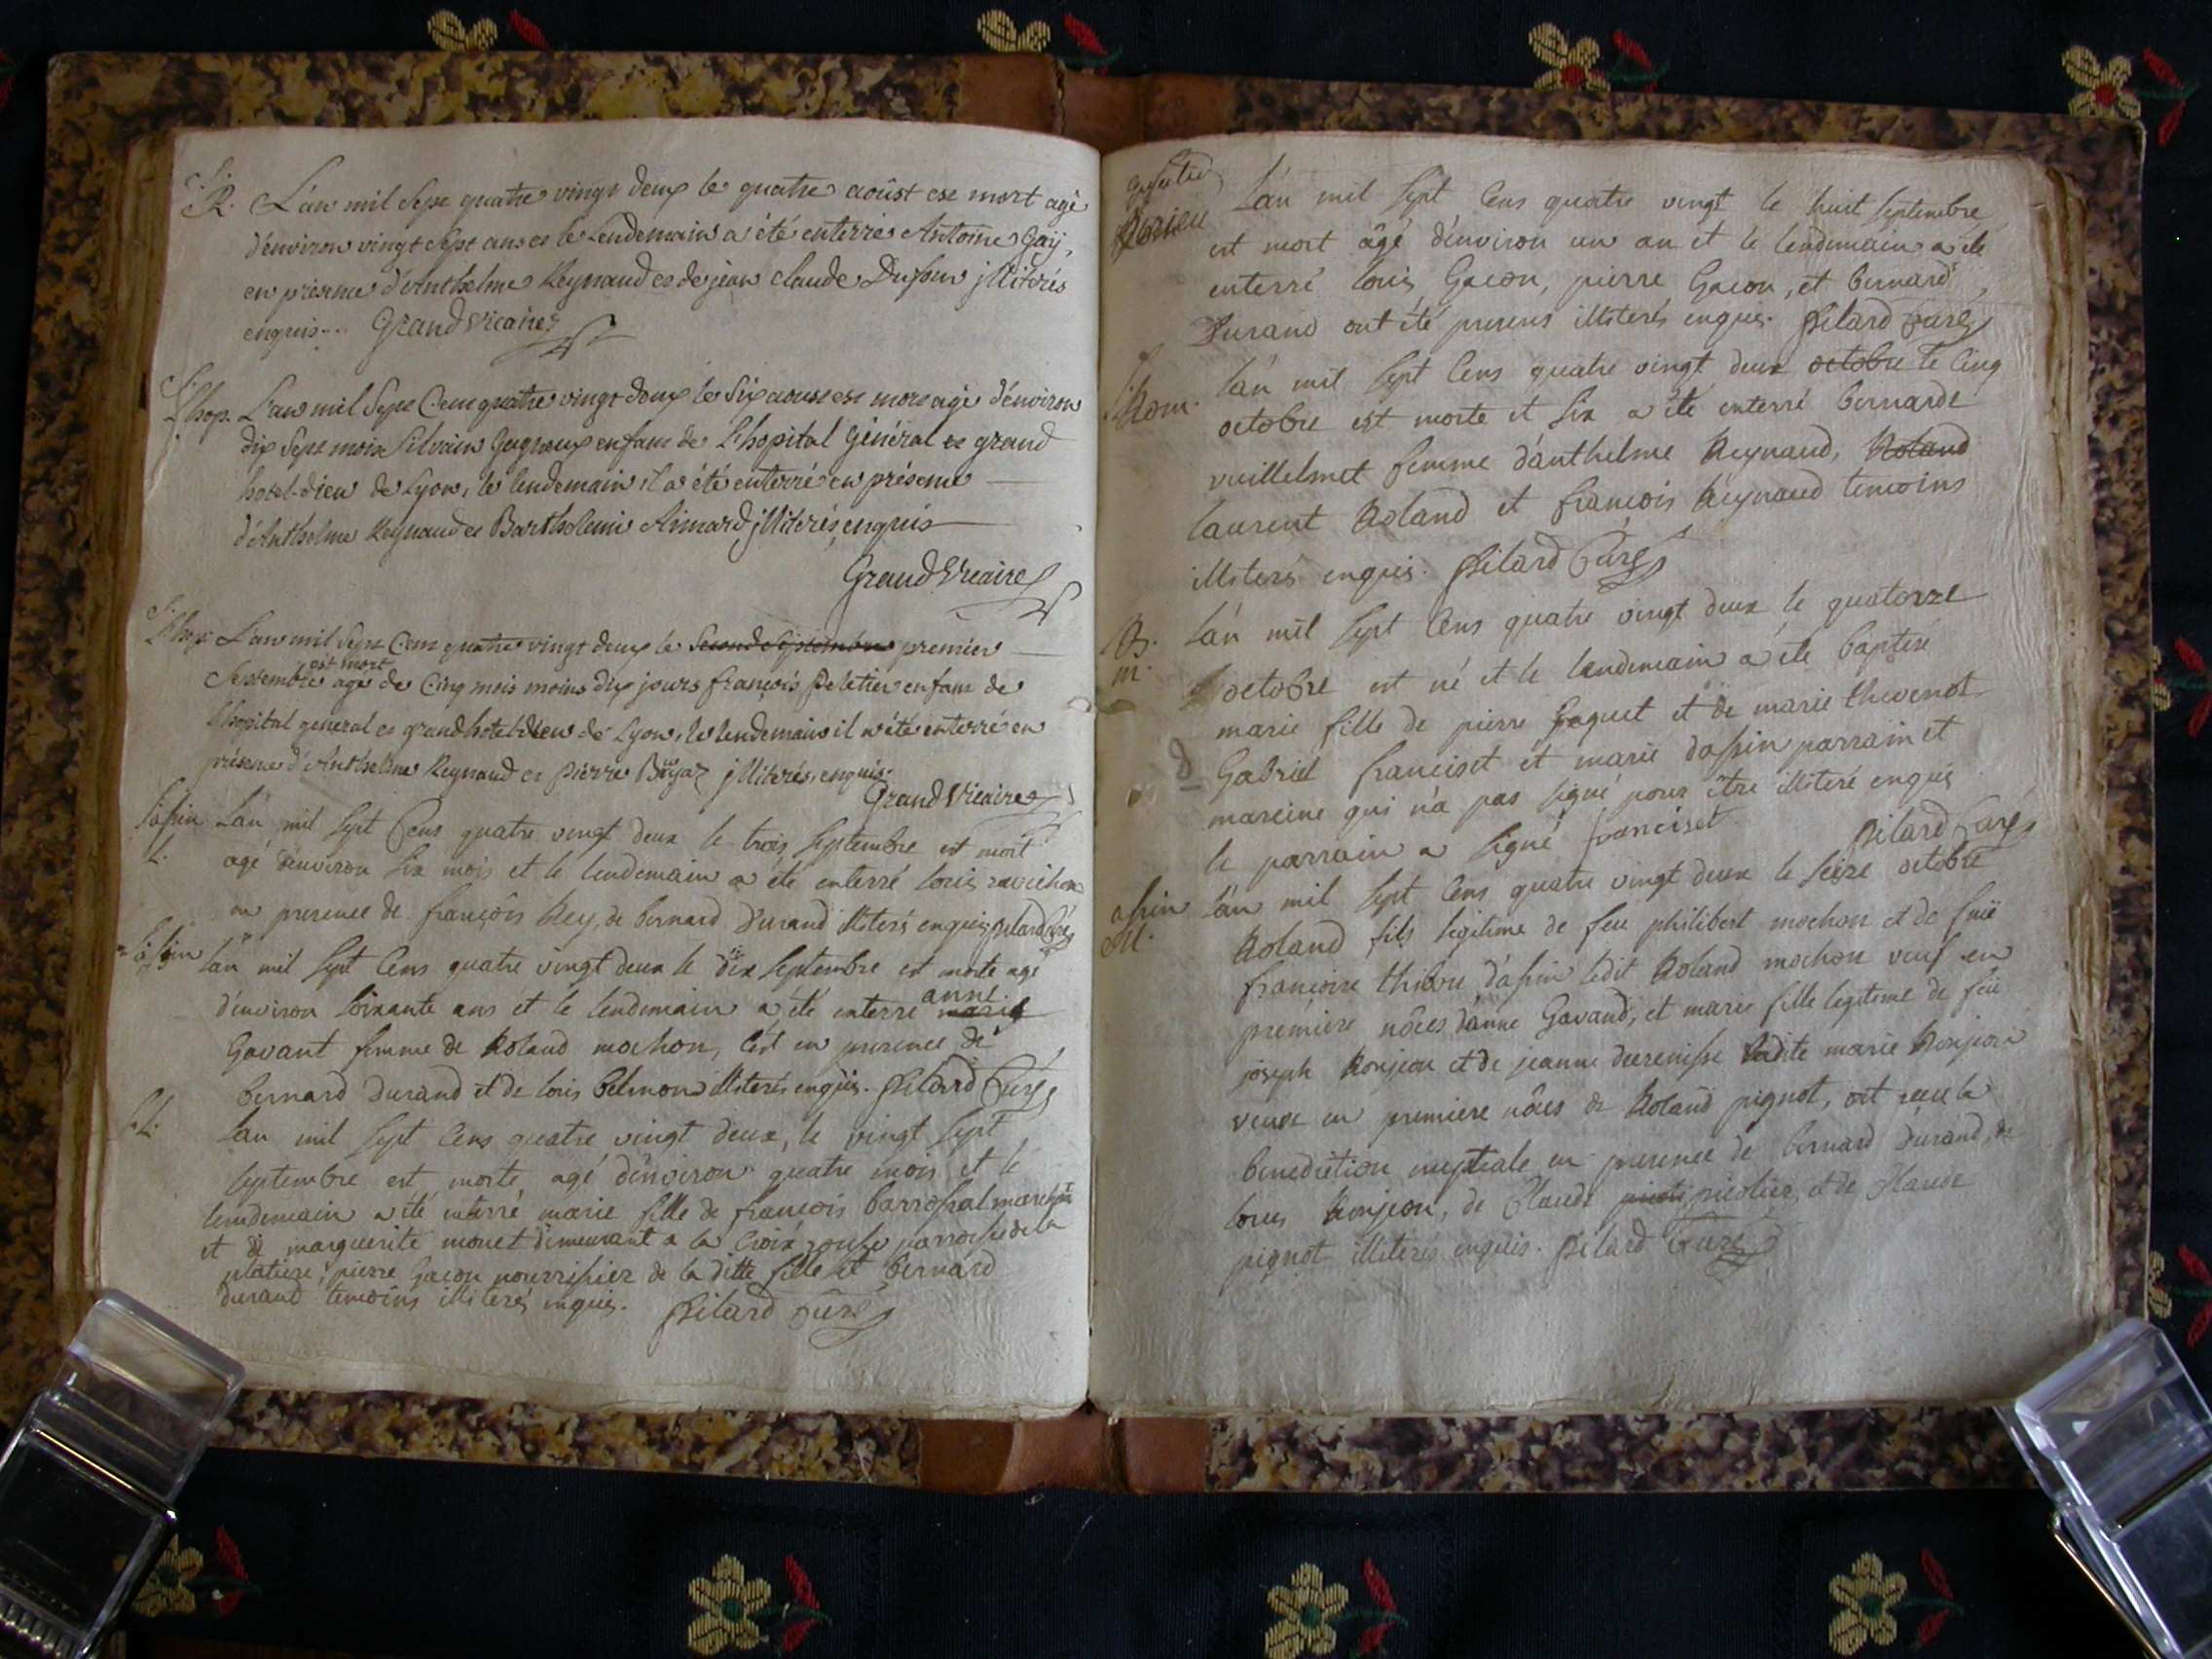 S.
R. L'an mil sept quatre vingt deux le quatre aoûst est mort agé
d'environ vingt sept ans et le Lendemain a été enterrés Antoine Gaÿ,
en présence d'Anthelme Reynaud et de jean claude Dufour jlliterés
enquis... Grand vicaire
S.
L'hop. L'an mil Sept Cent quatre vingt deux le Six aoust est mort agé d'environ
dix Sept mois Silvain enfant de L'hopital Général et grand
hotel-dieu de Lyon, le lendemain il a été enterré en présence
d'Anthelme Reynaud et Barthelemi Aimard jlliterés, enquis
Grand Vicaire
S.
L'hop. L'an mil Sept Cent quatre vingt deux le Second Septembre premier
est mort
Septembre agé de Cinq mois moins dix jours françois Peletier enfant de
l'hopital general et grand hotel-dieu de Lyon, le lendemain il a été enterré en
présence d'Anthelme Reynaud et Pierre jlliterés, enquis.
Grand Vicaire
L'an mil Sept Cens quatre vingt deux le trois Septembre est mort
S. agé d'environ Six mois et le lendemain a été enterré louis
en presence de françois Rey, de bernard Durand illiterés enquis pilard Curé
L'an mil Sept Cens quatre vingt deux le dix Septembre est morte agé
anne
d'environ Soixante ans et le lendemain a été enterré marie
Gavant femme de Roland mochon, C'est en presence de
bernard Durand et de louis belmon illiterés enquis. pilard Curé
S.L. L'an mil Sept Cens quatre vingt deux, le vingt Sept
Septembre est morte agé d'environ quatre mois et le
lendemain a été enterré marie fille de françois
et de marguerite monet demeurant a la Croix rousse parroisse de la
platiere, pierre Gacon nourrissier de la ditte fille et bernard
durand temoins illiterés enquis. pilard Curé
L'an mil Sept Cens quatre vingt le huit Septembre
est mort âgé d'environ un an et le lendemain a été
enterré louis Gacon, pierre Gacon, et bernard
Durand ont été presens illiterés enquis. pilard Curé
S. L'an mil Sept Cens quatre vingt deux octobre le Cinq
octobre est morte et Six a été enterré bernarde
vuillelmet femme d'anthelme Reynaud, Roland
laurent Roland et françois Reynaud temoins
illiterés enquis. pilard Curé
B. L'an mil Sept Cens quatre vingt deux le quatorze
m. octobre est né et le lendemain a été baptisé
marie fille de pierre et de marie thevenot
Gabriel franciset et marie d'assin parrain et
mareine qui n'a pas Signé pour être illiteré enquis
le parrain a Signé franciset pilard Curé
assin L'an mil Sept Cens quatre vingt deux le Seize octobre
M. Roland fils legitime de feu philibert mochon et de fuë
francoise d'assin ledit Roland mochon veuf en
premiere nôces d'anne Gavand, et marie fille legitime de feu
joseph Ronjon et de jeanne ladite marie Ronjon
veuve en premiere nôces de Roland pignot, ont recu la
benediction nuptiale en presence de bernard Durand, de
louis Ronjon, de Claude picolier, et de Claude
pignot illiterés enquis. pilard Curé